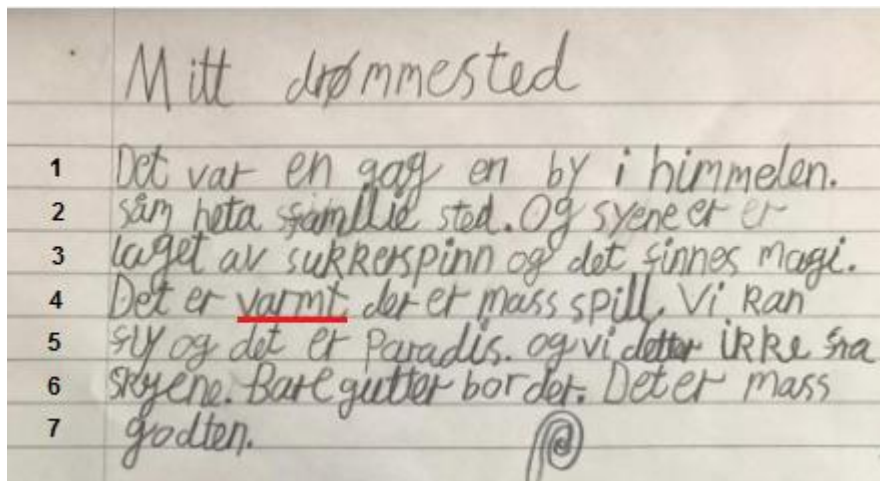 Mitt drømmested
1 Det var en gag en by i himmelen.
2 såm heta familie sted. Og syene er er
3 laget av sukkerspinn og det finnes magi.
4 Det er varmt der er mass spill. Vi kan
5 fly og det er Paradis. og vi detter ikke fra
6 skyene. Bare gutter bor der. Det er mass
7 godten.